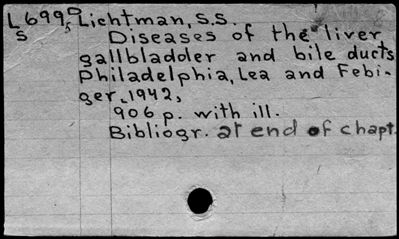 L699D Lichtman, S.S.
S Diseases of the liver
gallbladder and bile ducts
Philadelphia, Lea and Febi-
ger, 1942,
906 p. with ill.
Bibliogr. at end of chapt.